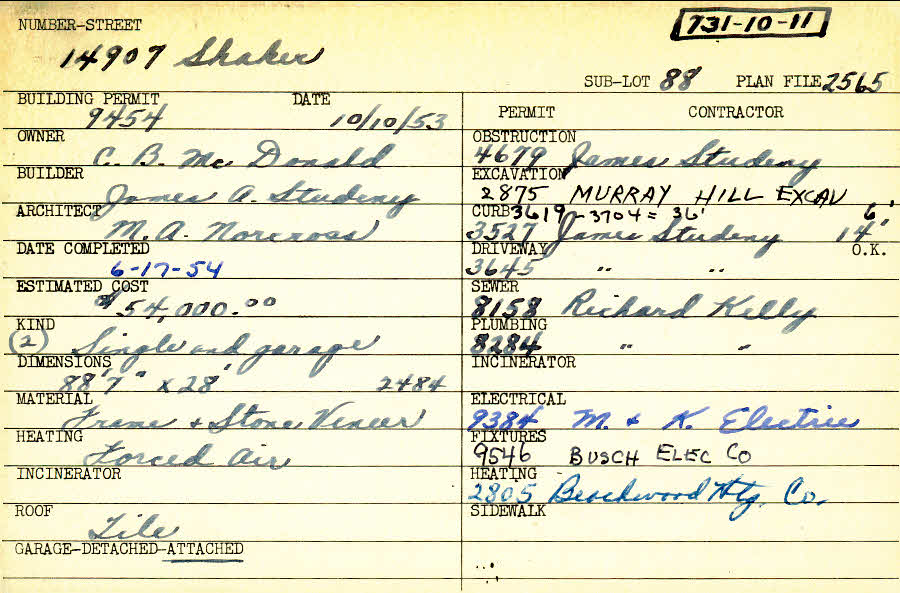 NUMBER-STREET
731-10-11
14907 Shaker
SUB-LOT 88 PLAN FILE 2565
BUILDING PERMIT DATE
9454 10/10/53
OWNER
C. B. Mc Donald
BUILDER
James A. Studeny
ARCHITECT
M. A. Norcross
DATE COMPLETED
6-17-54
ESTIMATED COST
$54,000.00
KIND
(2) Single and garage
DIMENSIONS
88'7" x 28' 2484
MATERIAL
Frame + Stone Veneer
HEATING
Forced Air
INCINERATOR
ROOF
Tile
GARAGE-DETACHED-ATTACHED
PERMIT CONTRACTOR
OBSTRUCTION
4679 James Studeny
EXCAVATION
2875 MURRAY HILL EXCAV
CURB 3619 - 3704 = 36' 6'
3527 James Studeny 14'
DRIVEWAY O.K.
3645 " "
SEWER
8158 Richard Kelly
PLUMBING
8284 " "
INCINERATOR
ELECTRICAL
9384 M. & K. Electric
FIXTURES
9546 BUSCH ELEC CO
HEATING
2805 Beachwood Htg. Co.
SIDEWALK